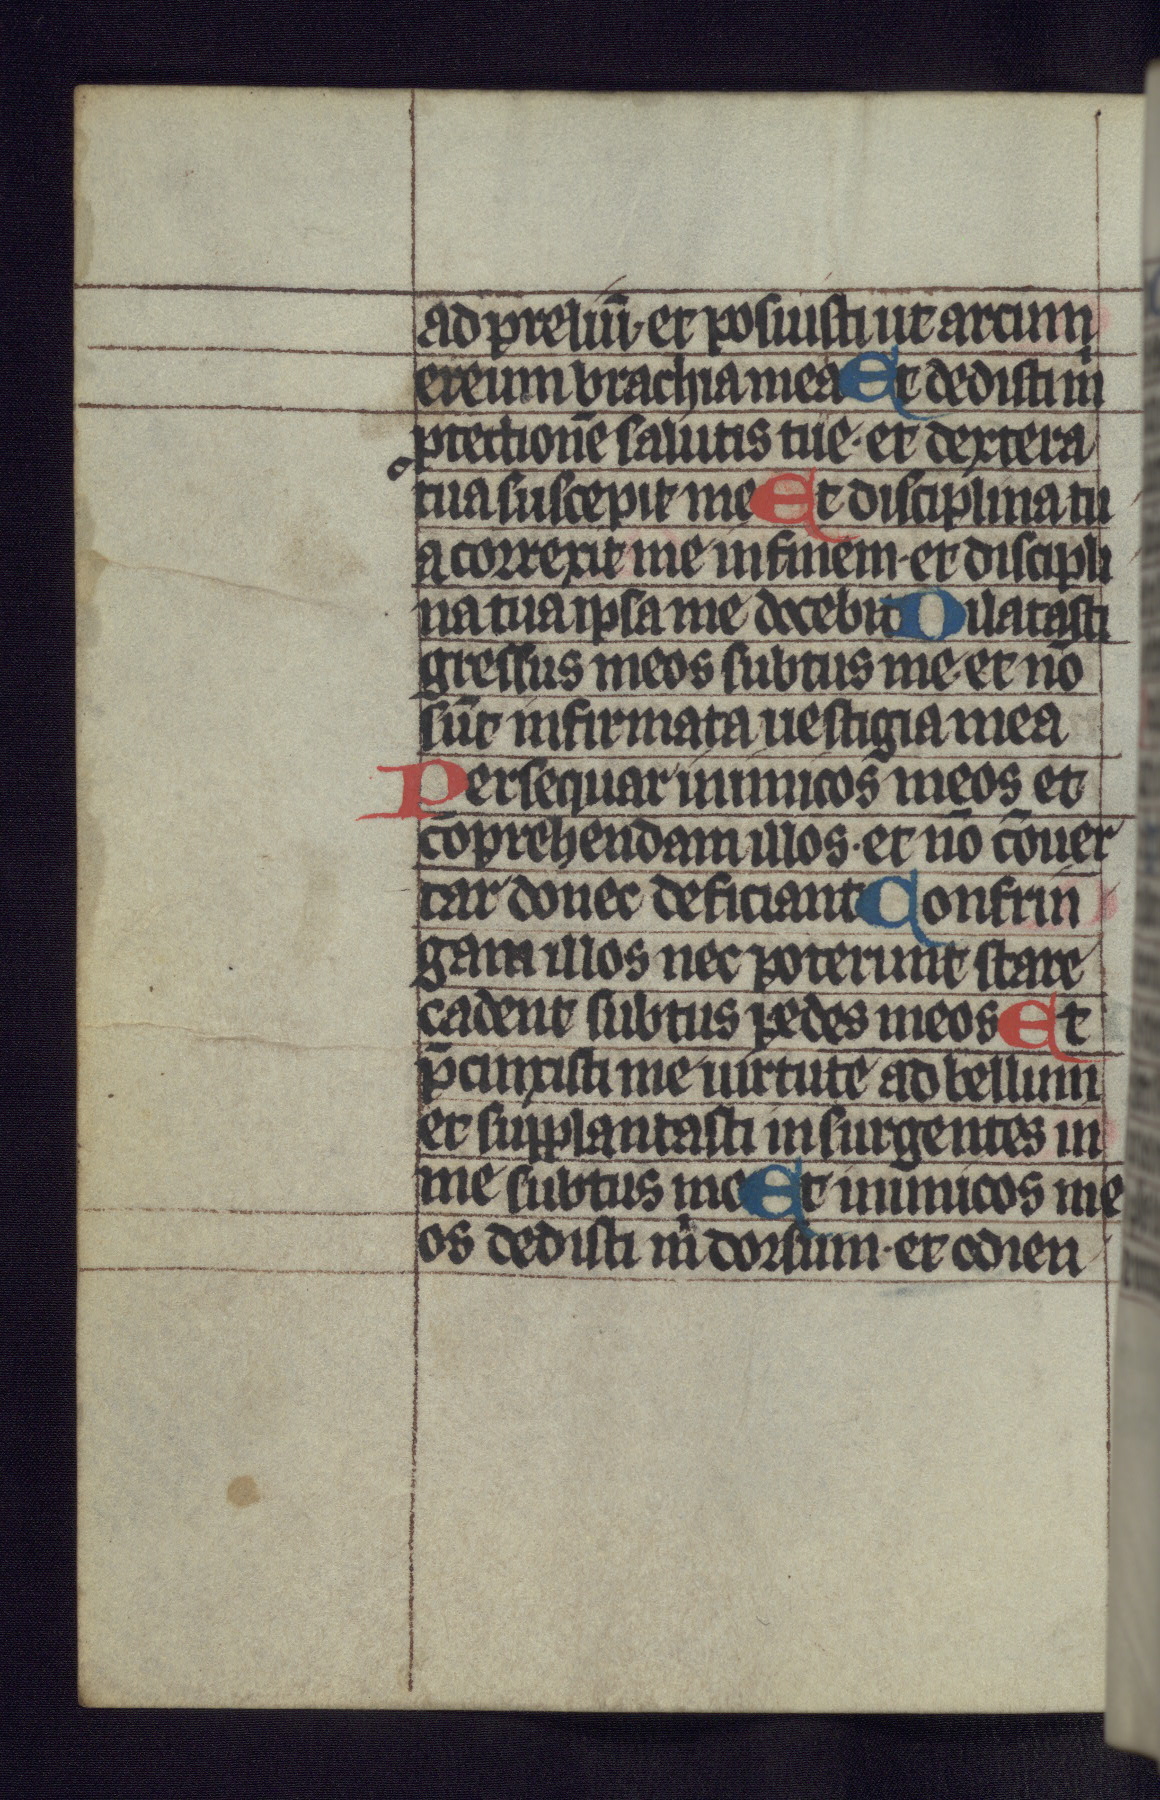 ad preliū· et posuisti ut arcum
ereum brachia mea Et dedisti m̄
ptectionē salutis tue· et dextera
tua suscepit me Et disciplina tu
a correxit me in finem· et discipli
na tua ipsa me docebit Dilatasti
gressus meos subtus me· et nō
sūt infirmata uestigia mea
Persequar inimicos meos et
cōprehendam illos· et nō cōuer
tar donec deficiant Confrin
gam illos nec poterunt stare
cadent subtus pedes meos Et
p̄cinxisti me uirtute ad bellum
et supplantasti insurgentes in
me subtus me Et inimicos me
os dedisti m̄ dorsum· et odien